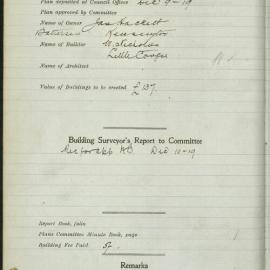 Plan deposited at Council Offices Dec 9-19
Plan approved by Committee
Name of Owner Jas Hackett
Kensington
Name of Builder M. Nicholas
Little
Name of Architect
Value of Buildings to be erected £137
Building Surveyor's Report to Committee
Dec 10-19
Report Book, folio
Plans Committee Minute Book, page
Building Fee Paid 5/-
Remarks